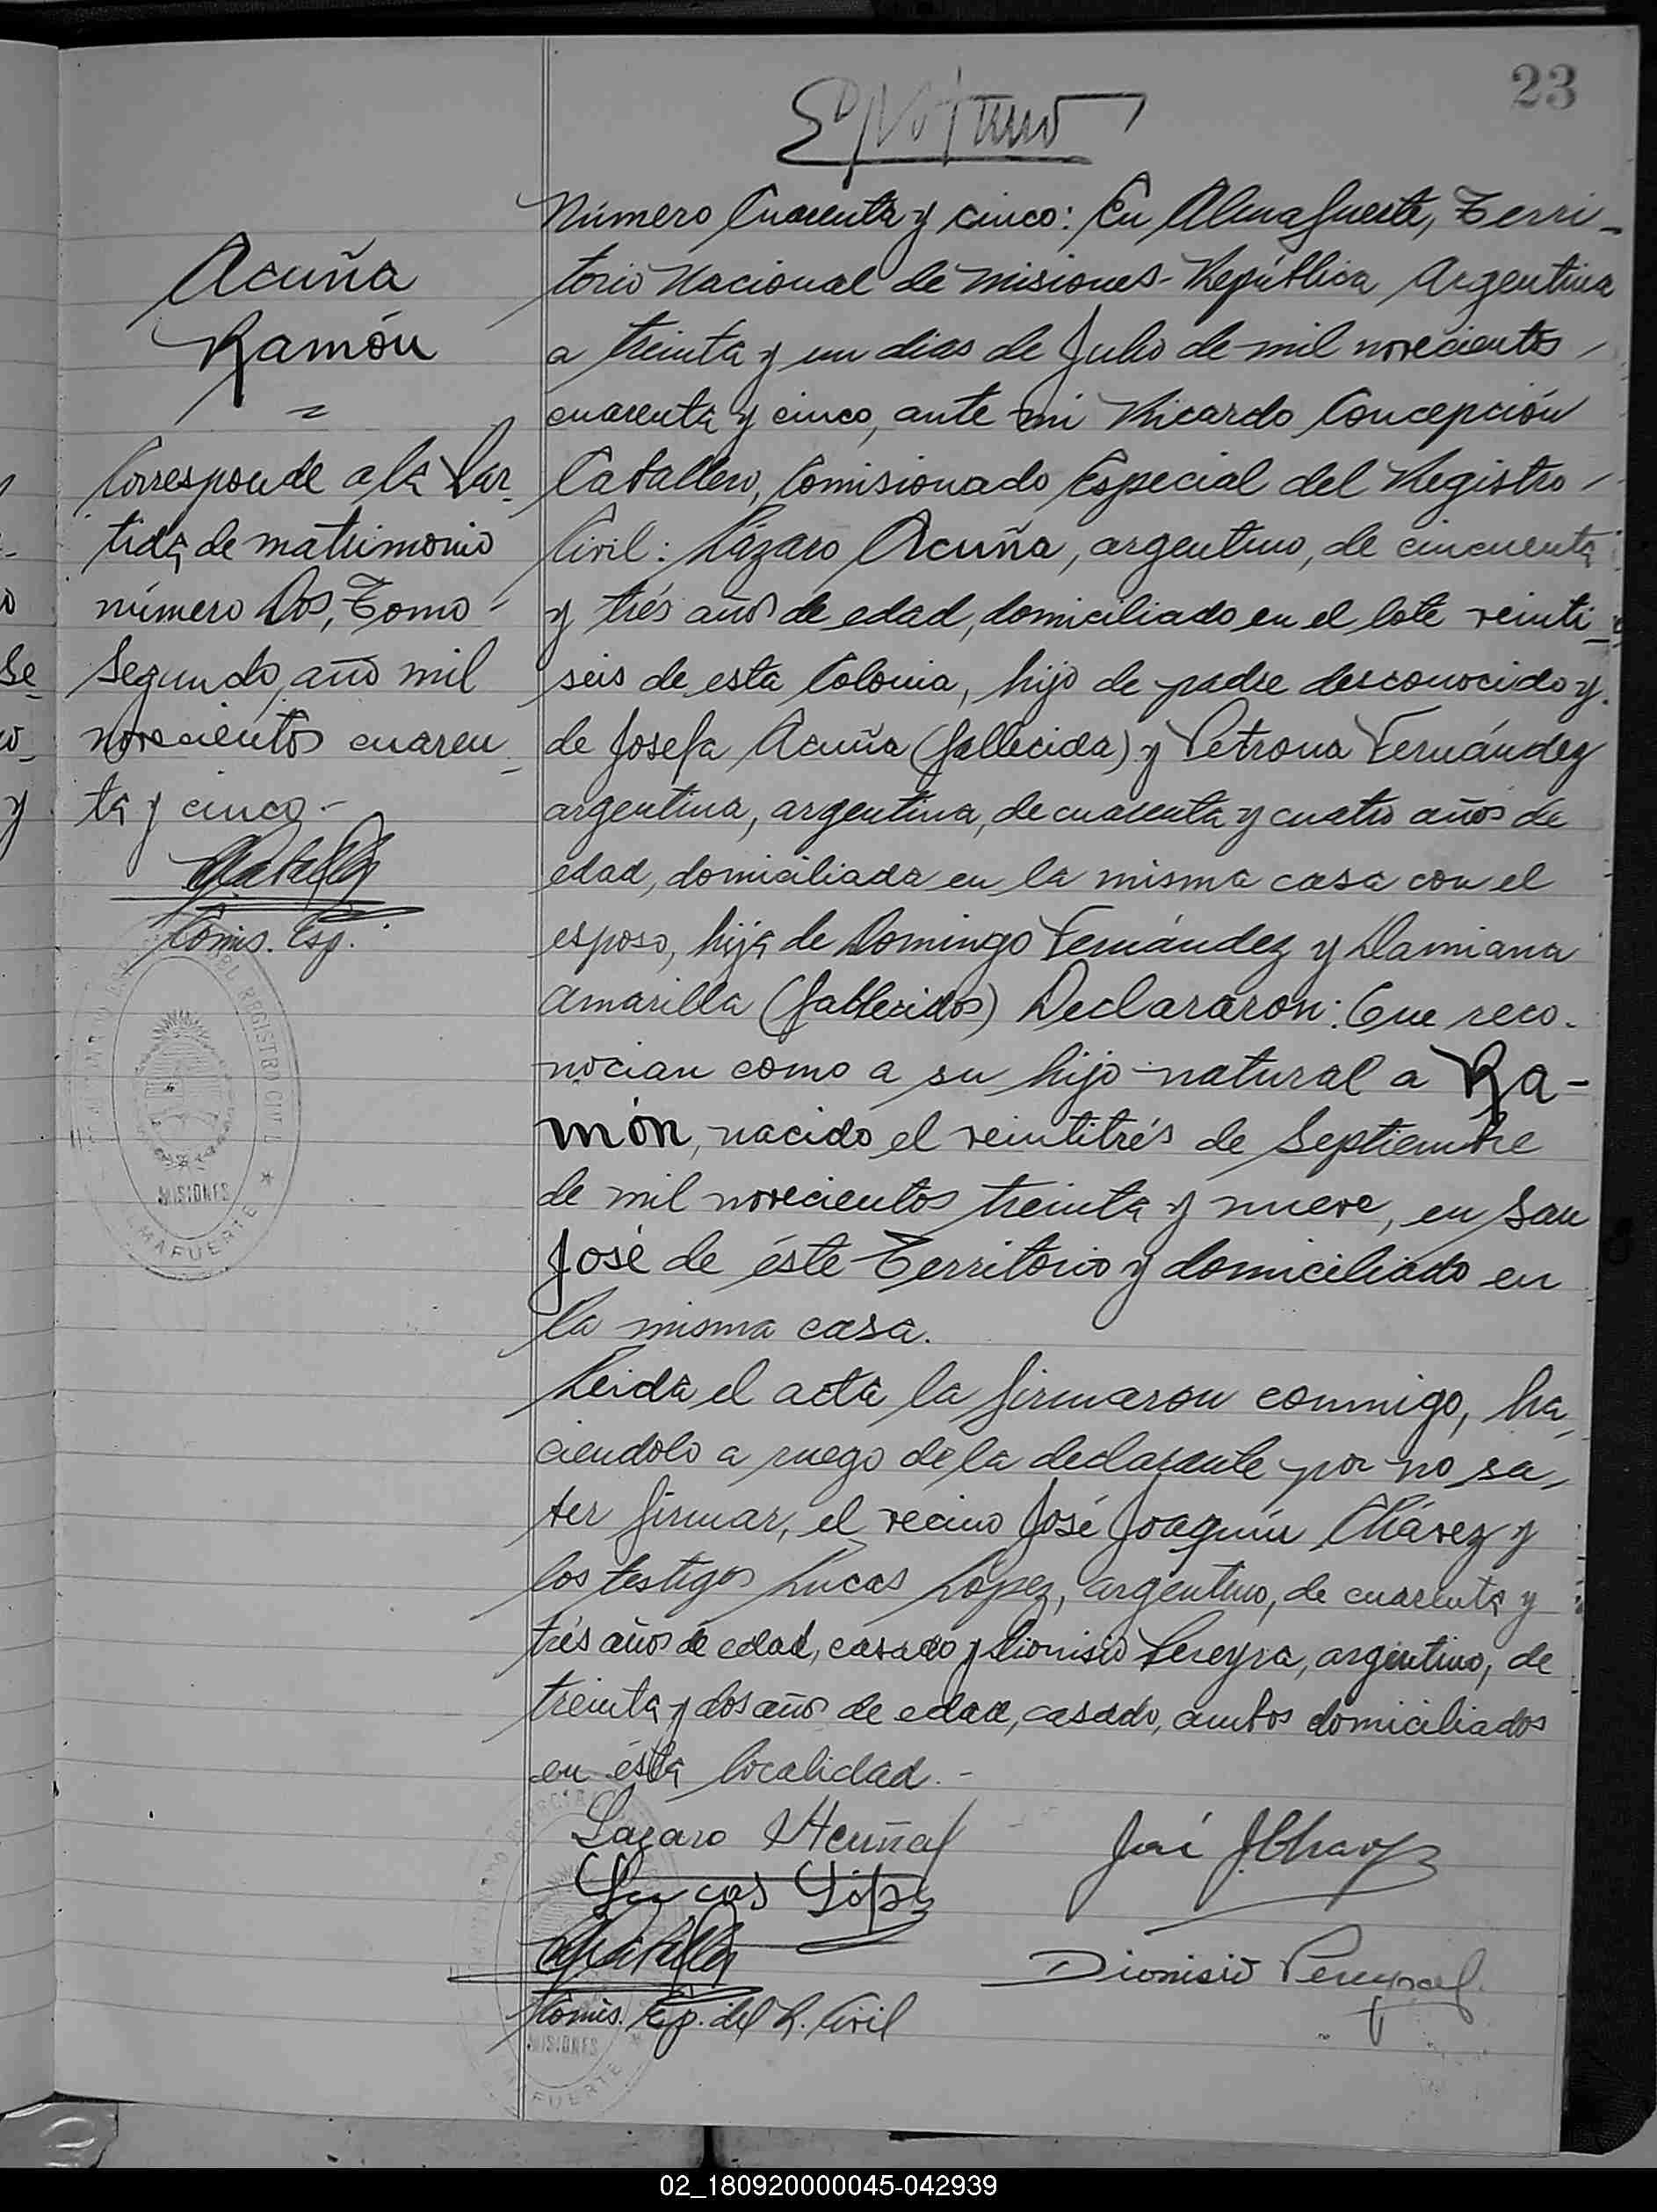 23
Número Cuarenta y cinco: En Almafuerte, Terri-
torio Nacional de Misiones-República Argentina
a treinta y un dias de Julio de mil novecientos
cuarenta y cinco, ante mi Ricardo Concepción
Caballero, Comisionado Especial del Registro
Civil: Lázaro Acuña, argentino, de cincuenta
y trés años de edad, domiciliado en el lote veinti-
seis de esta Colonia, hijo de padre desconocido y
de Josefa Acuña (fallecida) y Petrona Fernández
argentina, argentina, de cuarenta y cuatro años de
edad, domiciliada en la misma casa con el
esposo, hija de Domingo Fernández y Damiana
Amarilla (fallecidos) Declararon: Que reco-
nocian como a su hijo natural a Ra-
món, nacido el veintitrés de Septiembre
de mil novecientos treinta y nueve, en San
José de éste Territorio y domiciliado en
la misma casa.
Leida el acta la firmaron conmigo, ha-
ciendolo a ruego de la declarante por no sa-
ber firmar, el vecino José Joaquín Chávez y
los testigos Lucas López, argentino, de cuarenta y
trés años de edad, casado y Dionisio Pereyra, argentino, de
treinta y dos años de edad, casado, ambos domiciliados
en ésta localidad.-
Lazaro Acuña
José J. Chavez
Lucas López
Dionisio Pereyra
Comis. Esp. del R. Civil
MISIONES
Acuña
Ramón
=
Corresponde a la Par-
tida de matrimonio
número Dos, Tomo
Segundo, año mil
novecientos cuaren-
ta y cinco-
Comis. Esp.
DEL REGISTRO CIVIL
MISIONES
ALMAFUERTE
02_180920000045-042939